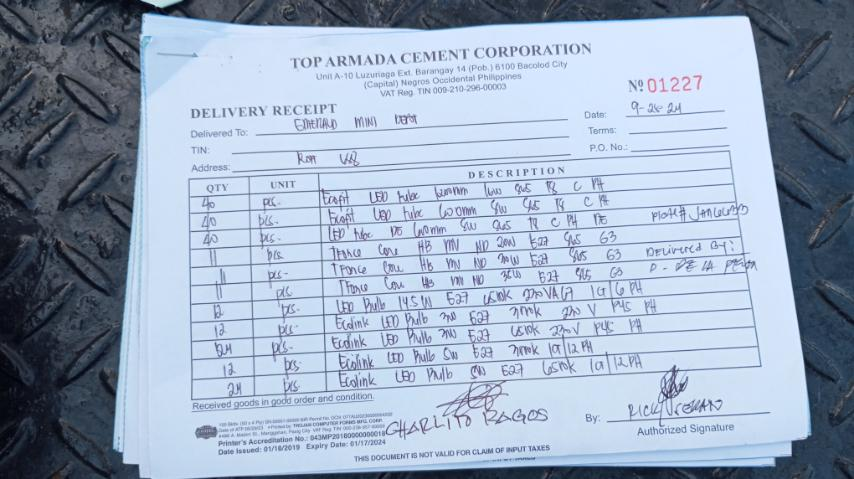 TOP ARMADA CEMENT CORPORATION
Unit A-10 Luzuriaga Ext. Barangay 14 (Pob.) 6100 Bacolod City
(Capital) Negros Occidental Philippines
VAT Reg. TIN 009-210-296-00003
Nº 01227
DELIVERY RECEIPT
Date: 9-28-24
Delivered To: EMERALD MINI DEPOT
Terms:
TIN:
P.O. No.:
Address:
QTY UNIT DESCRIPTION
40 pcs. Ecofit LED tube 1200mm 16W 865 T8 C PH
40 pcs. Ecofit LED tube 600mm 8W 865 T8 C PH
40 pcs. LED tube DE 600mm 8W 865 T8 C PH DE
11 pcs. TForce Core HB MV ND 20W E27 865 G3
11 pcs. TForce Core HB MV ND 30W E27 865 G3 Delivered By:
11 pcs TForce Core HB MV ND 35W E27 865 G3 D - DE LA PEÑA
12 pcs. LED Bulb 14.5W E27 6500K 230V
12 pcs. Ecolink LED Bulb 3W E27 3000K 230V P45 PH
24 pcs. Ecolink LED Bulb 3W E27 6500K 230V P45 PH
12 pcs. Ecolink LED Bulb 5W E27 3000K 1CT/12 PH
24 pcs. Ecolink LED Bulb E27 6500K 1CT/12 PH
Received goods in good order and condition.
CHARLITO RAGOS
By: RICKY
Authorized Signature
Printer's Accreditation No.: 043MP20180000000018
Date Issued: 01/18/2019 Expiry Date: 01/17/2024
THIS DOCUMENT IS NOT VALID FOR CLAIM OF INPUT TAXES